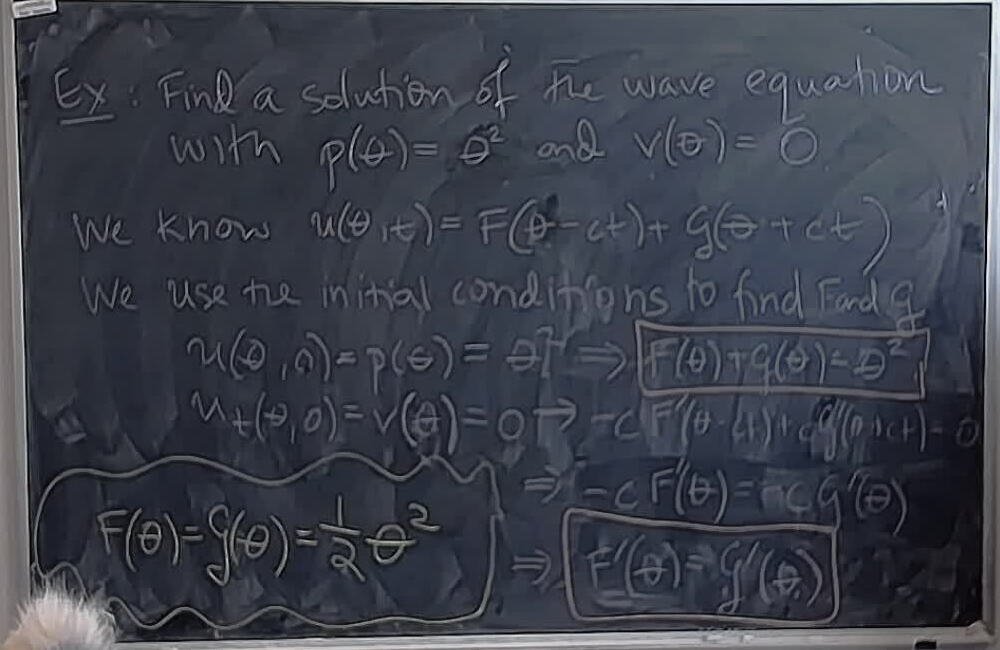 Ex: Find a solution of the wave equation
with p(θ) = θ² and v(θ) = 0
We know u(θ,t) = F(θ-ct) + G(θ+ct)
We use the initial conditions to find F and G
u(θ,0) = p(θ) = θ² ⇒ F(θ)+G(θ)=θ²
u_t(θ,0) = v(θ) = 0 → -c F'(θ-ct)+cG'(θ+ct) = 0
⇒ -c F'(θ) = -c G'(θ)
F(θ)=G(θ)=½θ²
⇒ F'(θ) = G'(θ)